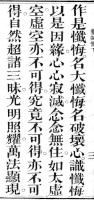 作是懺悔名大懺悔名破壞心識懺悔
以是因緣心心寂滅念念無住如大虛
空虛空亦不可得究竟不可得亦不可
得自然超諸三昧光明照耀萬法顯現